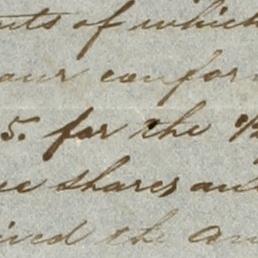 of which
our confor
5. for the
shares an
ived the am